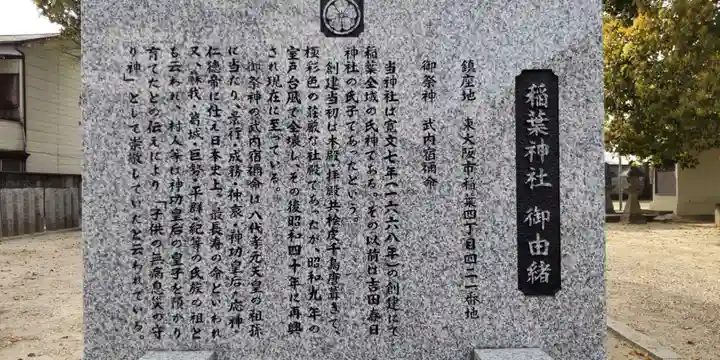 稲葉神社 御由緒
鎮座地 東大阪市稲葉四丁目四ー二一番地
御祭神 武内宿禰命
当神社は寛文七年(一六六八年)の創建にて
稲葉全域の氏神である。その以前は吉田春日
神社の氏子であったという。
創建当初は本殿、拝殿共桧皮千鳥唐葺きで、
極彩色の荘厳な社殿であったが、昭和九年の
室戸台風で全壊し、その後昭和四十年に再興
され現在に至っている。
御祭神の武内宿禰命は八代孝元天皇の皇孫
に当たり、景行・成務・仲哀・神功皇后・応神
仁徳帝に仕え日本史上、最長寿の命といわれ
又、蘇我・葛城・巨勢・平群・紀等の氏族の祖と
も云われ、村人等は神功皇后の皇子を預かり
育てたとの伝えにより、「子供の無病息災の守
り神」として崇敬していたと云われている。